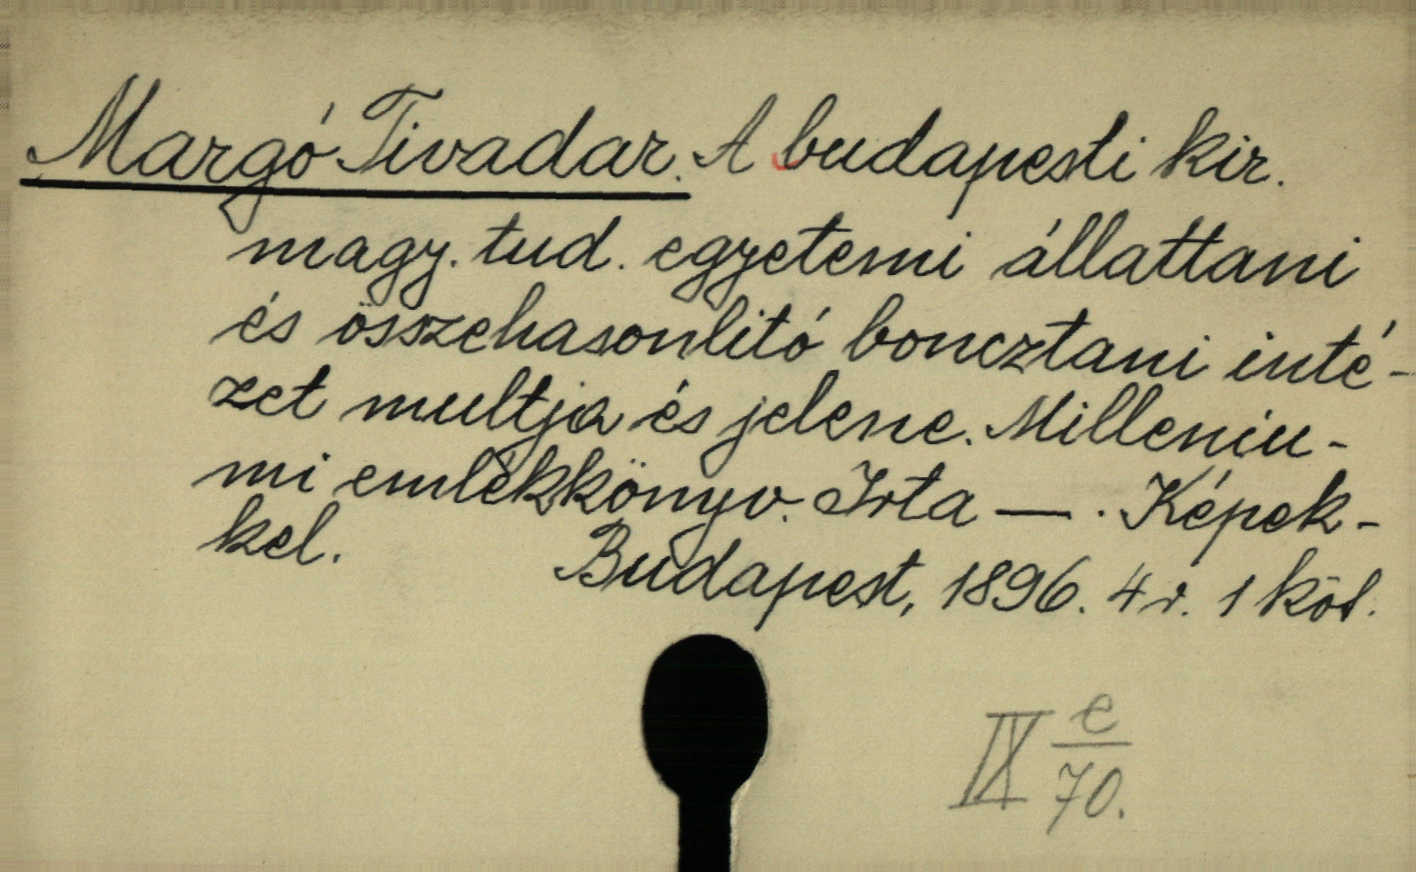 Margó Tivadar. A budapesti kir.
magy. tud. egyetemi állattani
és összehasonlitó boncztani inté-
zet multja és jelene. Milleniu-
mi emlékkönyv. Irta — . Képek-
kel. Budapest, 1896. 4 r. 1 köt.
IX e/70.